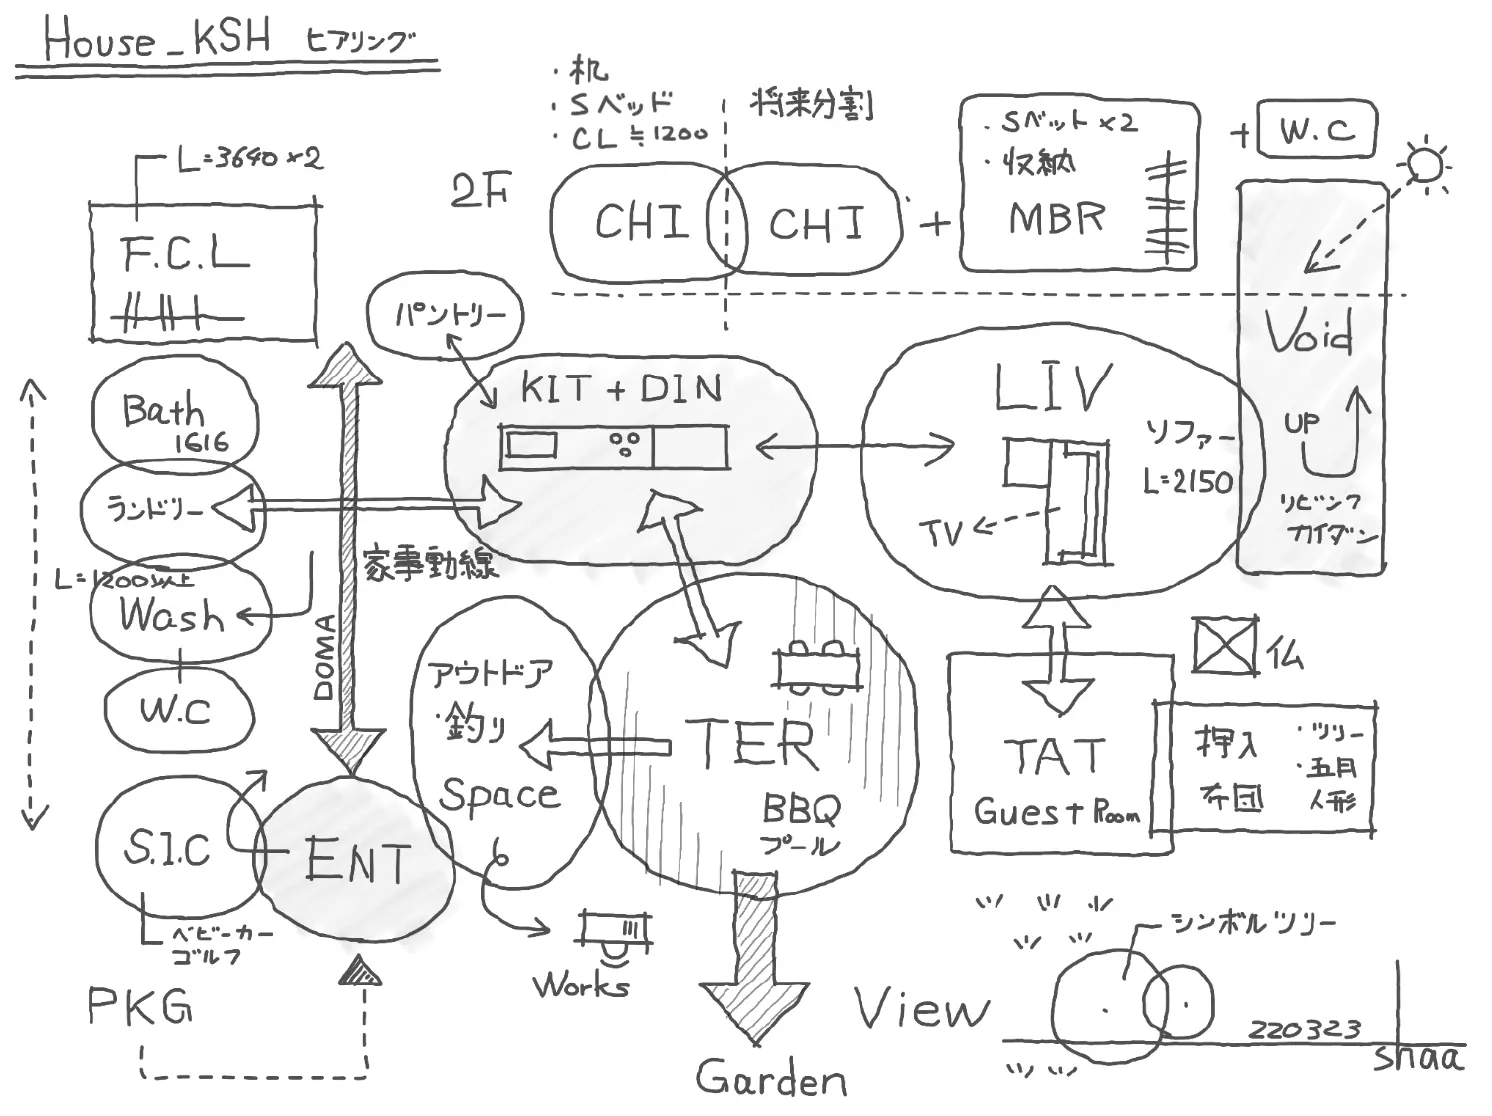 House_KSH ヒアリング
・机
・Sベッド
・CL≒1200
将来分割
L=3640×2
F.C.L
2F
CHI
CHI
+
・Sベット×2
・収納
MBR
+ W.C
パントリー
KIT + DIN
LIV
ソファー
L=2150
TV
Void
UP
リビング
カイダン
Bath
1616
ランドリー
L=1200以上
Wash
W.C
家事動線
DOMA
アウトドア
・釣り
Space
TER
BBQ
プール
TAT
Guest Room
仏
押入
布団
・ツリー
・五月
人形
S.I.C
ENT
ベビーカー
ゴルフ
Works
PKG
Garden
View
シンボルツリー
220323
shaa